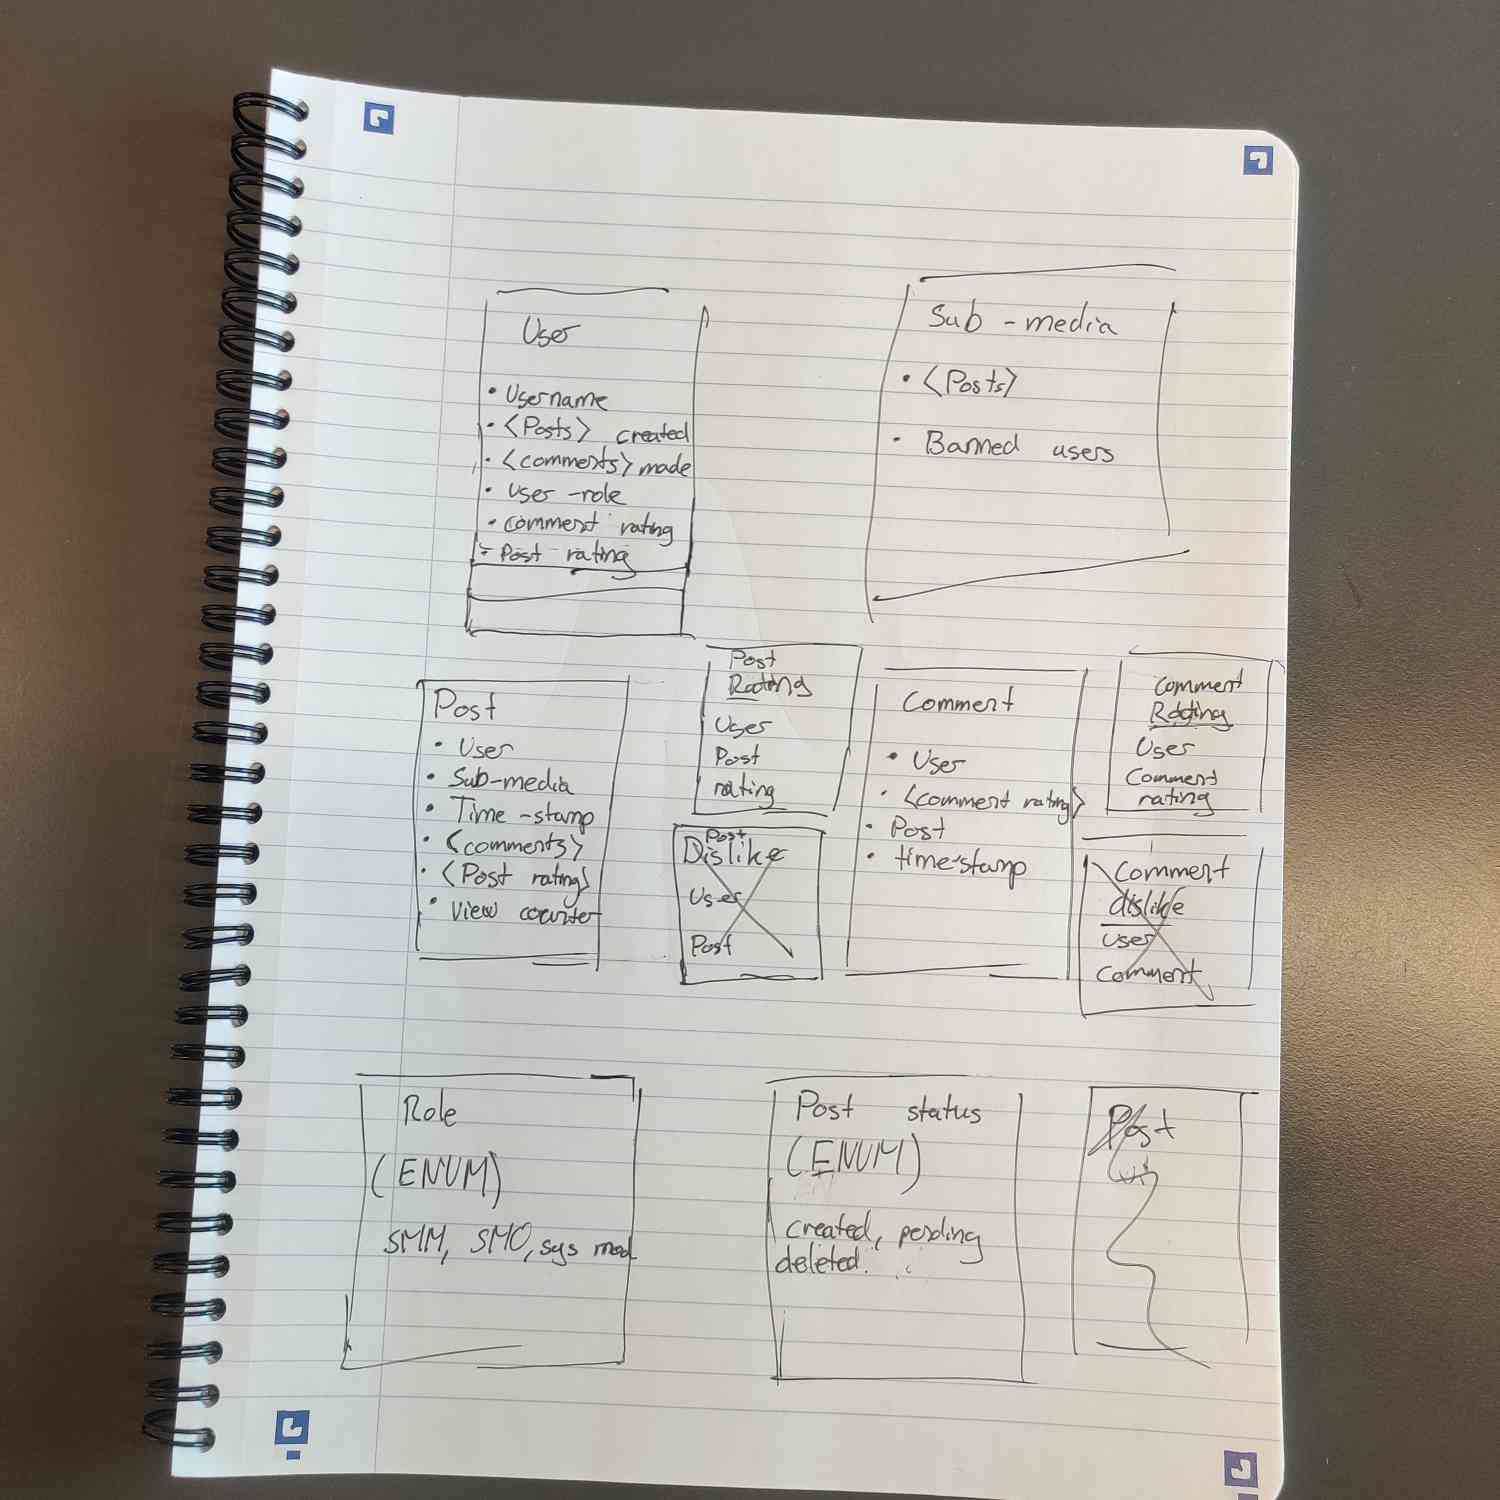 User
• Username
• <Posts> created
• <comments> made
• User-role
• comment rating
• Post rating
Sub-media
• <Posts>
• Banned users
Post
• User
• Sub-media
• Time-stamp
• <comments>
• <Post rating>
• View counter
Post
Rating
User
Post
rating
Post
Dislike
User
Post
Comment
• User
• <comment rating>
• Post
• time-stamp
Comment
Rating
User
Comment
rating
Comment
dislike
User
Comment
Role
(ENUM)
SMM, SMO, sys mod
Post status
(ENUM)
created, pending
deleted.
Post